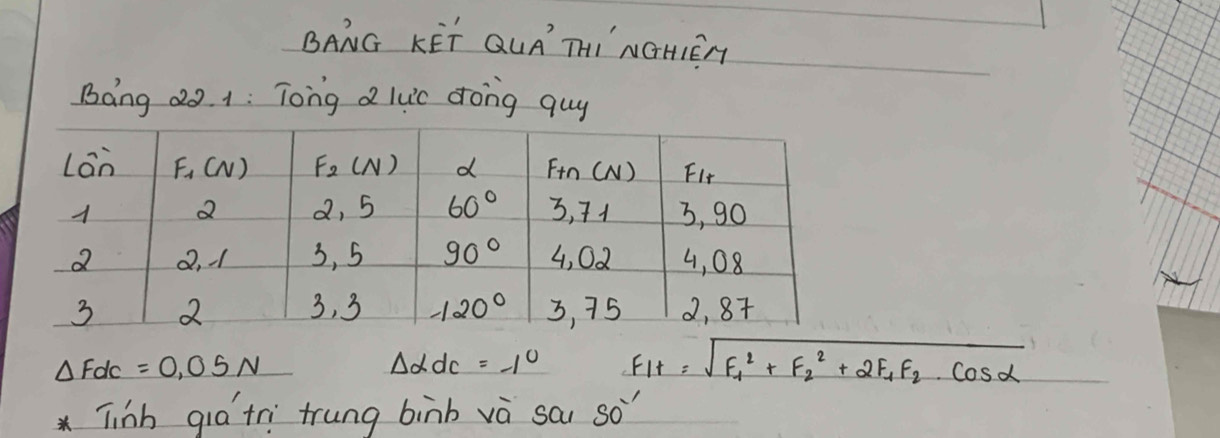 BẢNG KẾT QUẢ THÍ NGHIỆM
Bảng 22.1: Tổng 2 lực đồng quy
Lần F₁(N) F₂(N) α Ftn(N) Flt
1 2 2,5 60° 3,71 3,90
2 2,1 3,5 90° 4,02 4,08
3 2 3,3 120° 3,75 2,87
ΔFdc = 0,05N Δαdc = 1° Flt = √F₁² + F₂² + 2F₁F₂ . cosα
* Tính giá trị trung bình và sai số